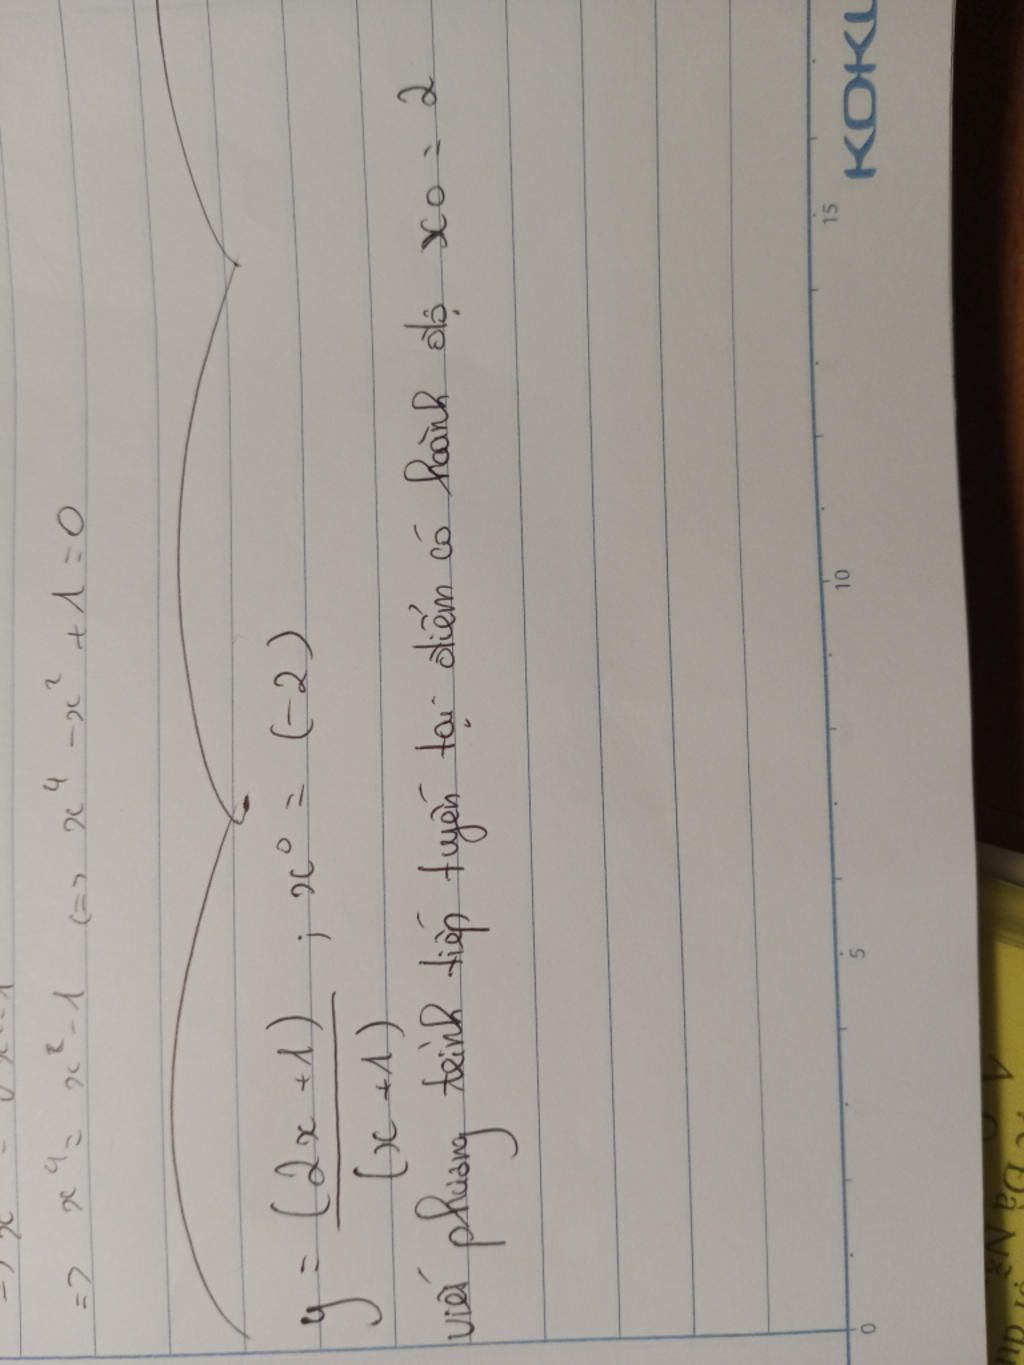 => x⁴ = x² - 1 <=> x⁴ - x² + 1 = 0
y = (2x + 1) ; x⁰ = (-2)
(x + 1)
viết phương trình tiếp tuyến tại điểm có hoành độ x0 = 2
0 5 10 15